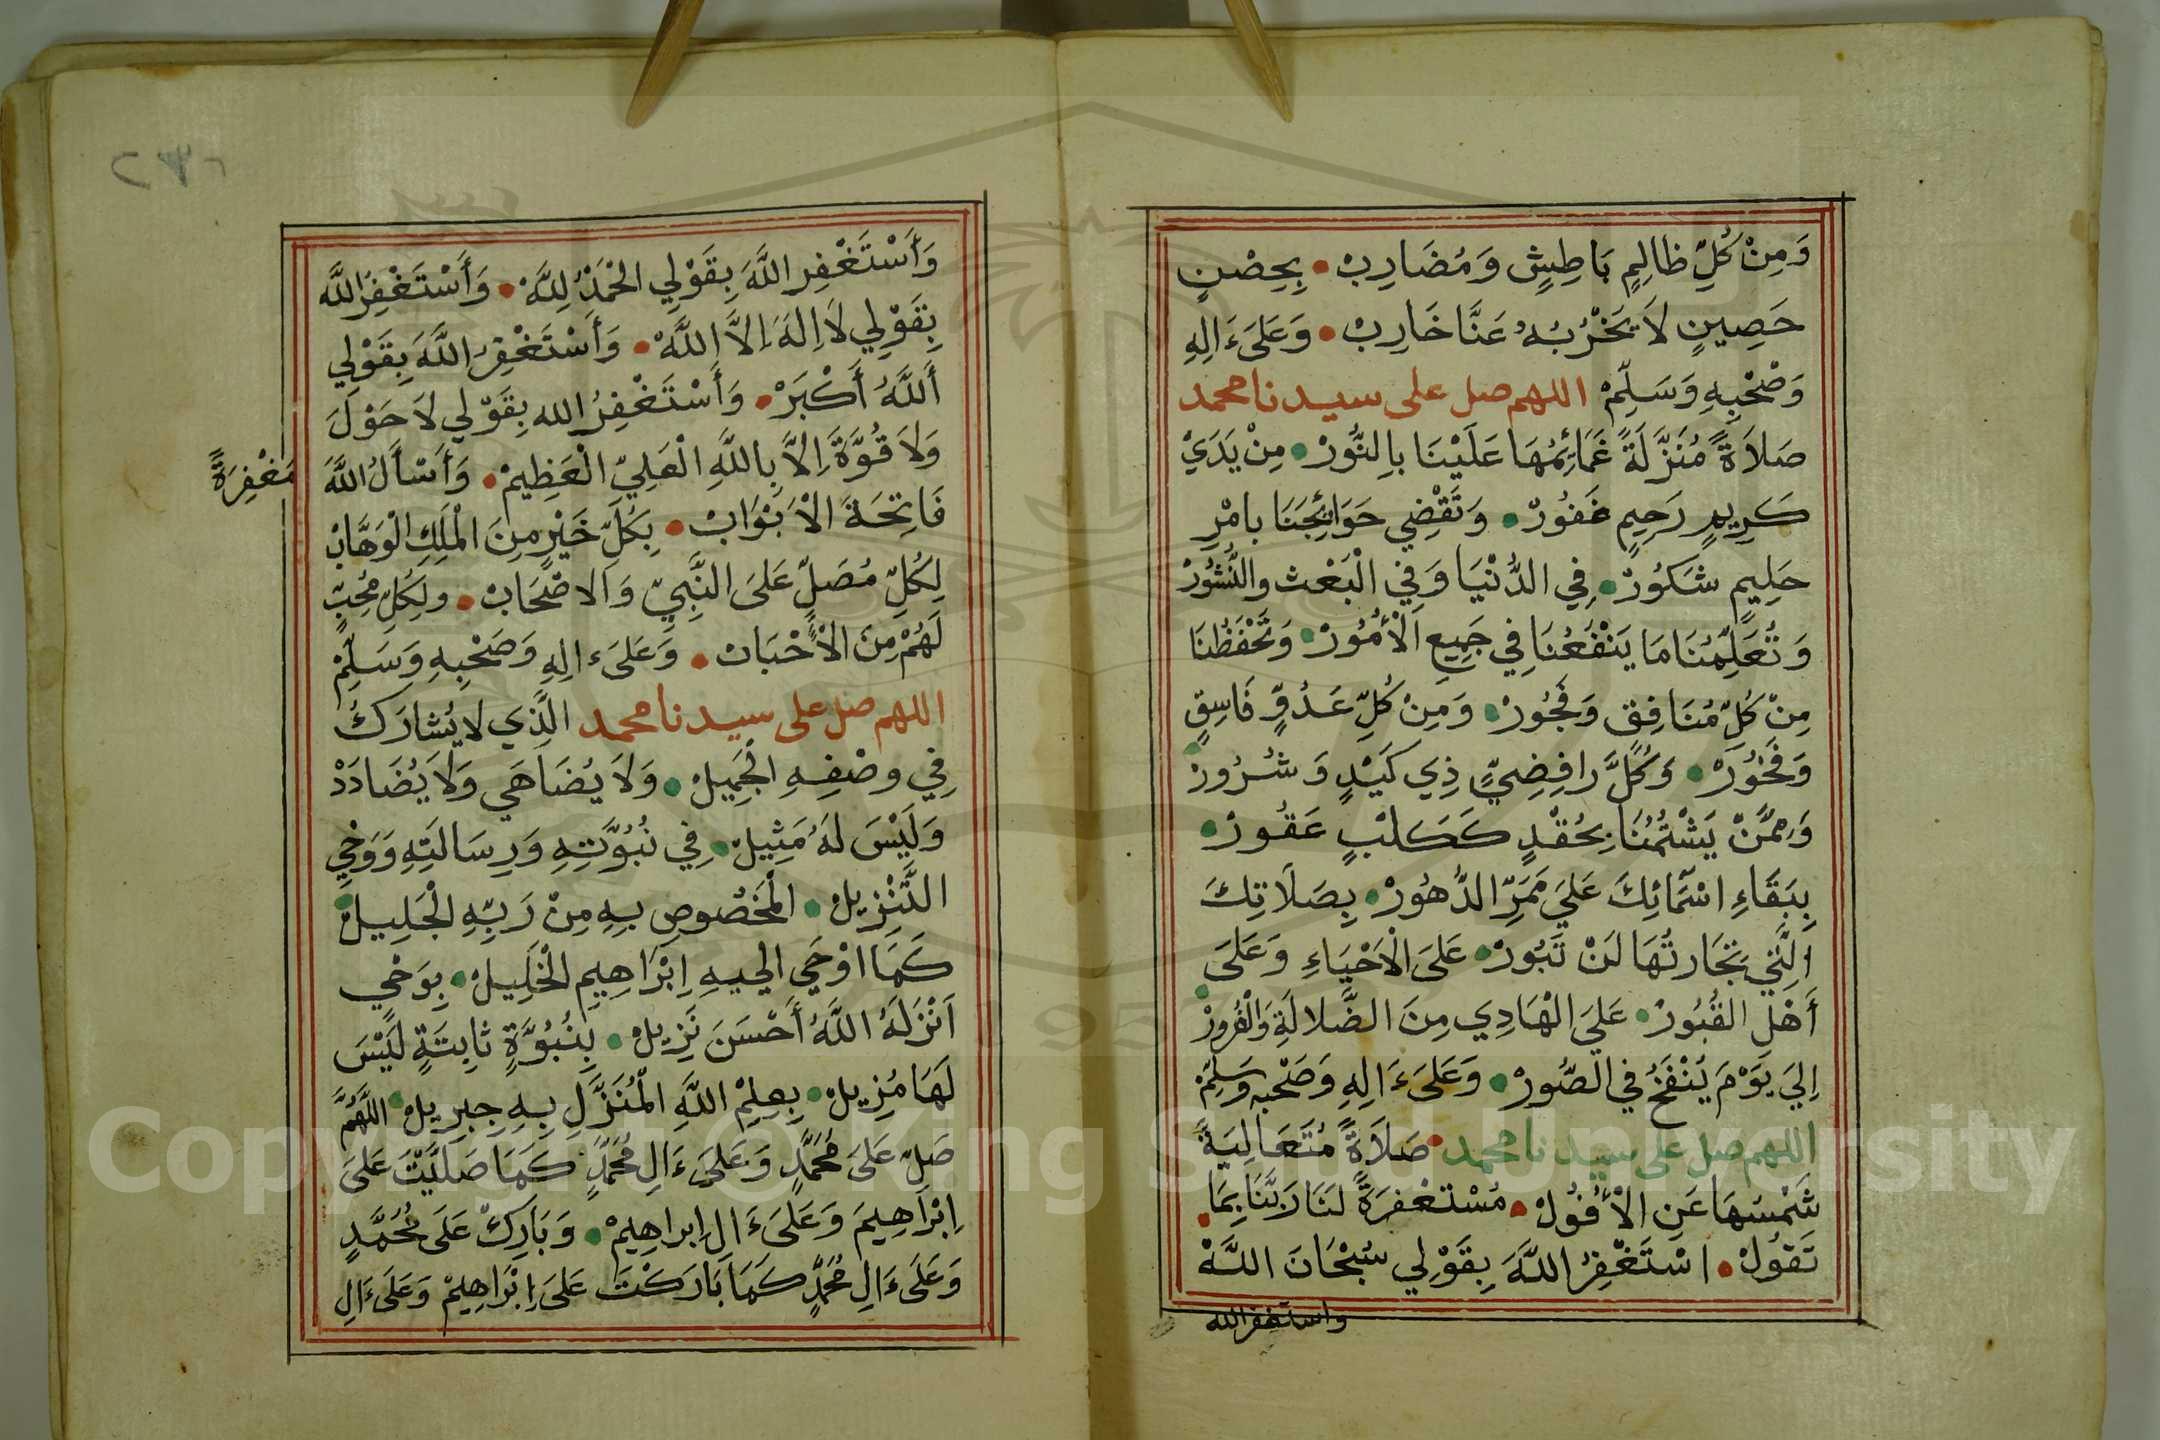 وَمِنْ كُلِّ ظَالِمٍ بَاطِشٍ وَمُضَارِبْ • بِحِصْنٍ
حَصِينٍ لاَ يَخْرُبُهُ عَنَّا خَارِبْ • وَعَلَىَ ءَالِهِ
وَصْحْبِهِ وَسَلِّمْ اللهم صل على سيدنا محمد
صَلاَةً مُنَزَّلَةً غَمَائِمُهَا عَلَيْنَا بِالنُّورْ • مِنْ يَدَيْ
كَرِيمٍ رَحِيمٍ غَفُورْ • وَتَقْضِي حَوَائِجَنَا بامْرِ
حَلِيمٍ شَكُورْ • فِي الدُّنْيَا وَفِي الْبَعْث والنُّشُورْ
وَتُعَلِّمُنَا مَا يَنْفَعُنَا فِي جَمِيعِ الْأُمُورْ • وَتَحْفَظُنَا
مِنْ كُلِّ مُنَافِقٍ وَفَجُورْ • وَمِنْ كُلِّ عَدُوٍّ فَاسِقٍ
وَفَخُورْ • وَكُلَّ رافِضِيٍّ ذِي كَيْدٍ وَشُرُورْ
وَمِمَّنْ يَشْتُمُنَا بِحُقْدٍ كَكَلْبٍ عَقُورْ •
بِبَقَاءِ اسْمَائِكَ عَلَيَ مَمَرِّ الدُّهُورْ • بِصَلَاتِكَ
الَّتِي تِجَارتُهَا لَنْ تَبُورْ • عَلَىَ الْاَحْيَاءِ وَعَلَىَ
أَهْلِ القُبُورْ • عَلَيَ الْهَادِي مِنَ الضَّلالَةِ وَالْغُرُورْ
اِلَيَ يَوْمَ يُنْفَخُ فِي الصُّورْ • وَعَلَىَ ءَالِهِ وَصَحْبِهِ وَسَلِّمْ
اللهم صل على سيدنا محمد • صَلاَةً مُتَعَالِيَةً
شَمْسُهَا عَنِ الْأُفُولْ • مُسْتغْفِرَةً لَنَا رَبَّنَا بِمَا
تَقُولْ • اسْتَغْفِرُ اللَّهَ بِقَوْلِي سُبْحَانَ اللَّهْ
واستغفر الله
وَأَسْتَغْفِرِ اللَّهَ بِقَوْلِي الْحَمْدُ لِلَّهْ • وَأَسْتَغْفِرُ اللَّهَ
بِقَوْلِي لاَ اِلَهَ اِلاَّ اللَّهْ • وَأَسْتَغْفِرُ اللَّهَ بِقَوْلِي
أَللَّهُ أَكْبَرْ • وَأَسْتَغْفِرُ الله بِقَوْلِي لاَ حَوْلَ
وَلاَ قُوَّةَ اِلاَّ بِاللَّهِ الْعَلِيِّ الْعَظِيمْ • وَأَسْأَلُ اللَّهَ
مَغْفِرَةً
فَاتِحَةَ الْاَبْوَابْ • بِكُلِّ خَيْرٍ مِنَ الْمَلِكِ الْوَهَّابْ
لِكُلِّ مُصَلٍّ عَلَىَ النَّبِيِّ وَالاصْحَابْ • ولِكُلِّ مُحِبٍّ
لَهُمْ مِنَ الْأَحْبَابْ • وَعَلَىَ ءالِهِ وَصَحْبِهِ وَسَلِّمْ
اللهم صل على سيدنا محمد الَّذِي لا يُشارَكُ
فِي وصْفِهِ الْجَمِيلْ • وَلاَ يُضَاهَي وَلاَ يُضَادَدْ
وَلَيْسَ لَهُ مَثِيلْ • فِي نُبُوَّتِهِ وَرِسَالَتِهِ وَوَحْيِ
التَّنْزِيلْ • الْمَخْصُوصِ بِهِ مِنْ رَبِّهِ الْجَلِيلْ
كَمَا اوْحَي الي ابْرَاهِيمَ الْخَلِيلْ • بِوَحْيٍ
اَنْزَلَهُ اللَّهُ أَحْسَنَ نَزِيلْ • بِنُبُوَّةٍ ثابِتَةٍ لَيْسَ
لَهَا مُزِيلْ • بِعِلْمِ اللَّهِ الْمُنَزَّلِ بِهِ جِبرِيلْ • اللَّهُمَّ
صَلِّ عَلَىَ مُحَمَّدٍ وَعَلَىَ ءَالِ مُحَمَّدٍ كَمَا صَلَّيْتَ عَلَىَ
اِبْرَاهِيمَ وَعَلَىَ ءَالِ اِبراهِيمْ • وَبَارِكْ عَلَىَ مُحَمَّدٍ
وَعَلَىَ ءَالِ مُحَمَّدٍ كَمَا بَارَكْتَ عَلَىَ اِبْرَاهِيمْ وَعَلَىَ ءَالِ
Copyright © King Saud University